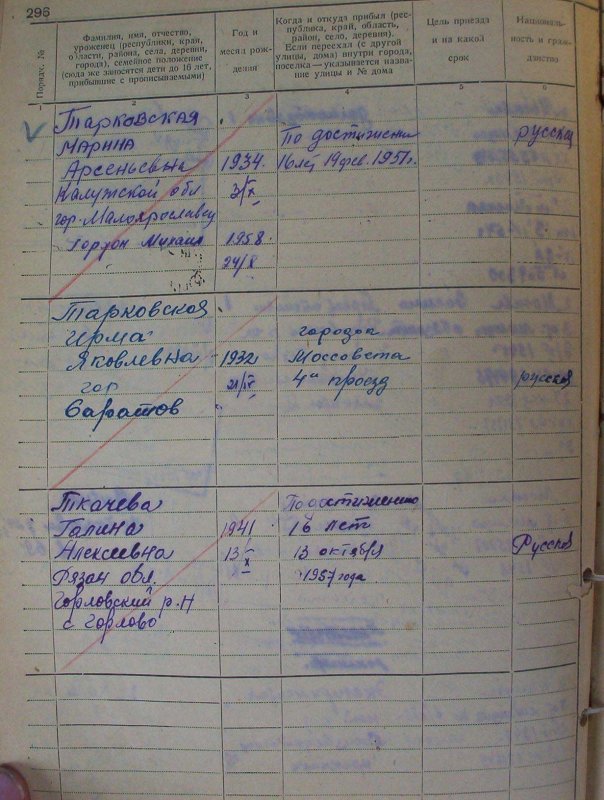 296
Порядк. №
Фамилия, имя, отчество,
уроженец (республики, края,
области, района, села, деревни,
города), семейное положение
(сюда же заносятся дети до 16 лет,
прибывшие с прописываемыми)
Год и
месяц рож-
дения
Когда и откуда прибыл (рес-
публика, край, область,
район, село, деревня).
Если переехал (с другой
улицы, дома) внутри города,
поселка — указывается назва-
ние улицы и № дома
Цель приезда
и на какой
срок
Националь-
ность и граж-
данство
1 2 3 4 5 6
Тарковская
Марина
Арсеньевна
Калужской обл.
гор. Малоярославец
Гордон Михаил
1934
3/X
1958
24/8
По достижении
16 лет 19 фев. 1951г.
русская
Тарковская
Ирма
Яковлевна
гор
Саратов
1932
городок
Моссовета
4й проезд
русская
Ткачева
Галина
Алексеевна
Рязан обл.
Горловский р-н
с Горлово
1941
13
X
По достижению
16 лет
13 октября
1957 года
Русская